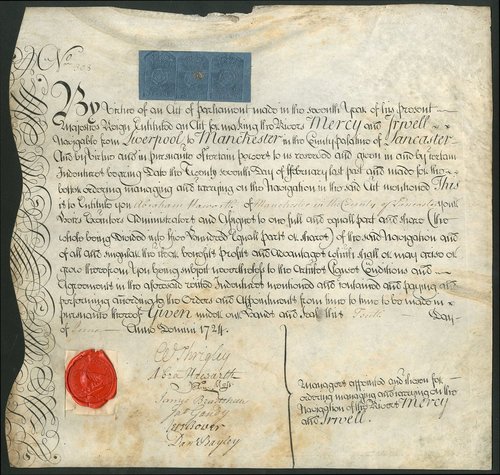 No. 305
By Virtue of an Act of Parliament made in the seventh Year of his present
Majesties Reign Entituled an Act for making the Rivers Mercy and Irwell
Navigable from Liverpool to Manchester in the County Palatine of Lancaster
And by Virtue and in pursuance of certain powers to us reserved and given in and by certain
Indentures bearing Date the Twenty seventh Day of February last past and made for the
better ordering managing and carrying on the Navigation in the said Act mentioned This
is to Entitle you Abraham Haworth of Manchester in the County of Lancaster your
Executors Administrators and Assignes to one full and equall part and share (the
whole being Divided into five Hundred Equall parts or shares) of the said Navigation and
of all and singular the stock benefit Profits and Advantages which shall or may arise or
grow therefrom you being subject nevertheless to the Articles Conditions and
Agreements in the aforesaid recited Indentures mentioned and contained and paying and
performing according to the Orders and Appointments from time to time to be made in
pursuance thereof Given under our Hands and Seal this Tenth Day
of June Anno Domini 1724.
Shrigley
Haworth
James Bradshaw
Gandy
Dan Bayley
Managers appointed and chosen for
ordering managing and carrying on the
Navigation of the Rivers Mercy
and Irwell.